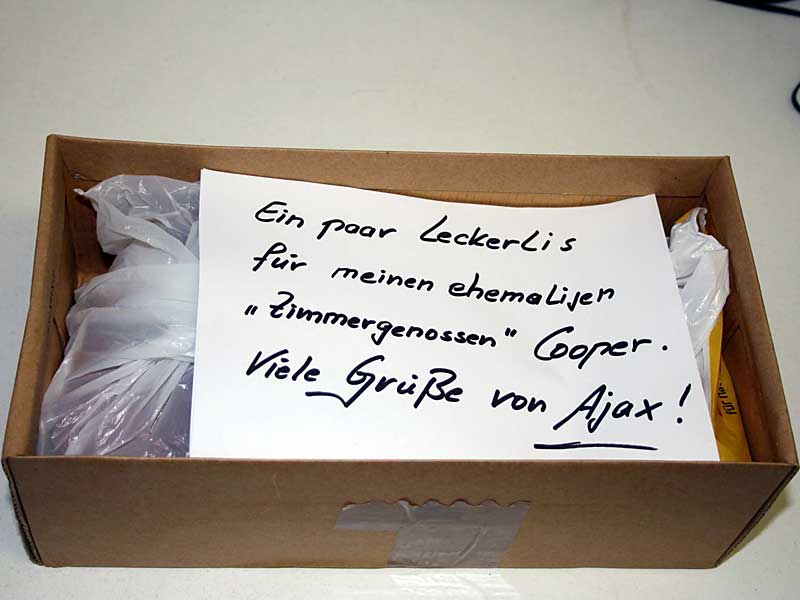 Ein paar Leckerlis
für meinen ehemaligen
„Zimmergenossen" Cooper.
Viele Grüße von Ajax!
für